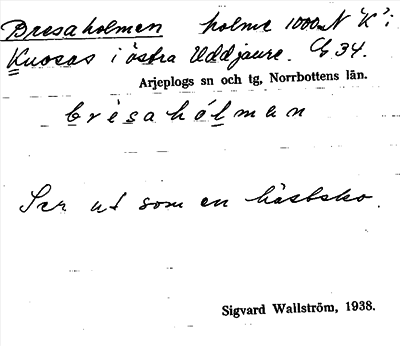 Bresaholmen holme 1000 m N "K" i
Kuosas i östra Uddjaure. G 34.
Arjeplogs sn och tg, Norrbottens län.
brèsahólmen
Ser ut som en hästsko.
Sigvard Wallström, 1938.